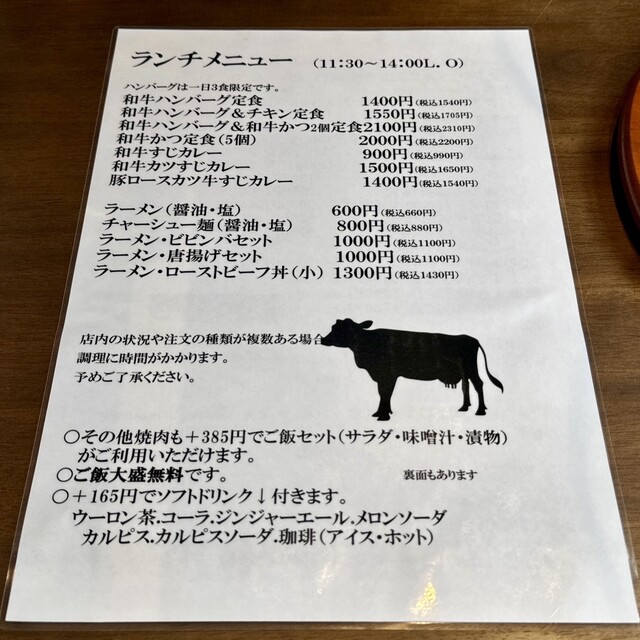 ランチメニュー （11:30～14:00L.O）
ハンバーグは一日3食限定です。
和牛ハンバーグ定食 1400円(税込1540円)
和牛ハンバーグ＆チキン定食 1550円(税込1705円)
和牛ハンバーグ＆和牛かつ2個定食2100円(税込2310円)
和牛かつ定食(5個) 2000円(税込2200円)
和牛すじカレー 900円(税込990円)
和牛カツすじカレー 1500円(税込1650円)
豚ロースカツ牛すじカレー 1400円(税込1540円)
ラーメン(醤油・塩) 600円(税込660円)
チャーシュー麺(醤油・塩) 800円(税込880円)
ラーメン・ビビンバセット 1000円(税込1100円)
ラーメン・唐揚げセット 1000円(税込1100円)
ラーメン・ローストビーフ丼(小) 1300円(税込1430円)
店内の状況や注文の種類が複数ある場合
調理に時間がかかります。
予めご了承ください。
〇その他焼肉も＋385円でご飯セット(サラダ・味噌汁・漬物)
がご利用いただけます。
〇ご飯大盛無料です。 裏面もあります
〇＋165円でソフトドリンク↓付きます。
ウーロン茶.コーラ.ジンジャーエール.メロンソーダ
カルピス.カルピスソーダ.珈琲(アイス・ホット)